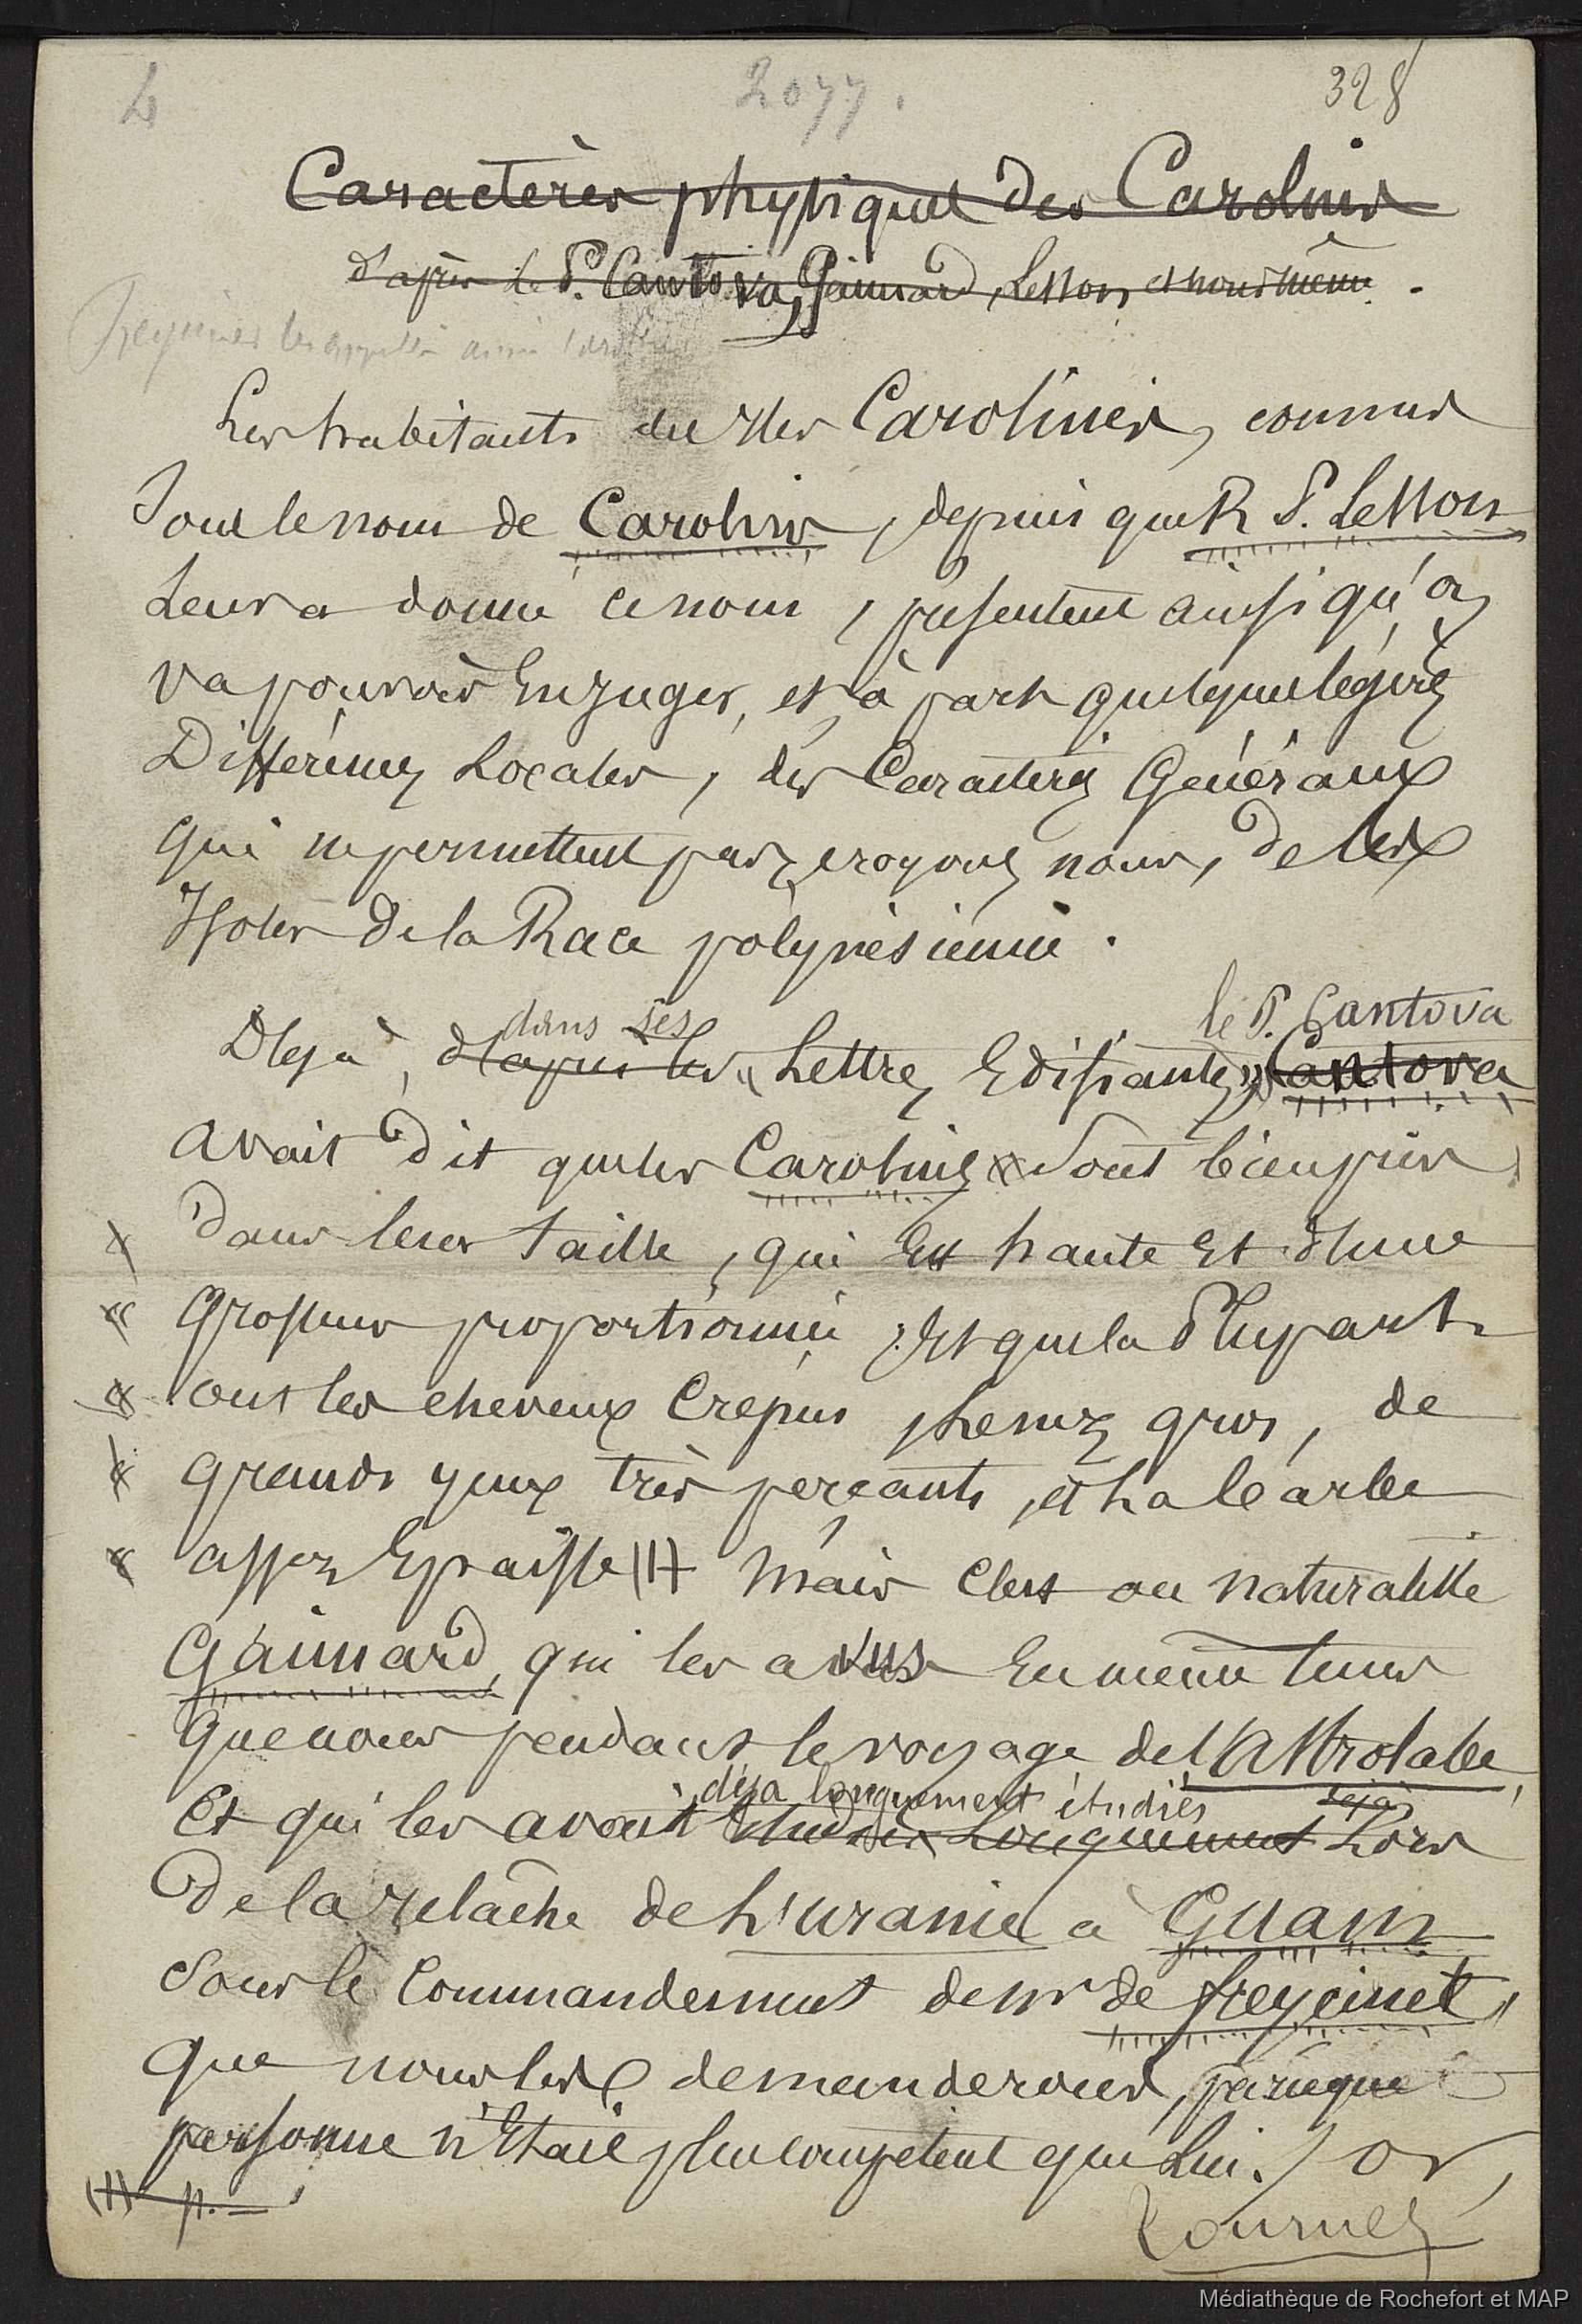 4 2077. 328
Caractères physiques des Carolins
d'après le P. Cantova, Gaimard, Lesson et nous même.
les appelle ainsi
Les habitants des Iles Carolines, connus
Sous le nom de Carolins, depuis que R. P. Lesson
Leur a donné ce nom, présentent ainsi qu'on
va pouvoir En juger, et à part quelques légères
Différences Locales, des Caractères Généraux
qui ne permettent pas, croyons nous, de les
Isoler De la Race polynésienne.
le P. Cantova
dans ses
Déjà, d'après les « Lettres Edifiantes » Cantova
avait Dit que les Carolins « Sont bien pris
« Dans leur taille, qui Est haute Et d'une
« Grosseur proportionnée ; Et que la Plupart
« ont les cheveux Crépus, Le nez gros, de
« grands yeux très perçants, et La barbe
« assez Epaisse (1) Mais C'est au naturaliste
Gaimard, qui les a vus En même tems
que nous pendant le voyage de l'Astrolabe,
déja longuement étudiés déjà
Et qui les avait étudiés Longuement Lors
De la relâche de L'uranie à Guam
Sous le Commandement de Mr de freycinet,
que nous les demanderons, parceque
personne n'Etait plus compétent que Lui. / Or,
(1) p. —
Tournez
Médiathèque de Rochefort et MAP